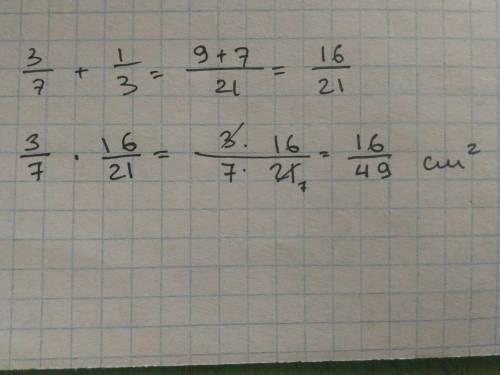 3/7 + 1/3 = (9+7)/21 = 16/21
3/7 · 16/21 = (3· 16)/(7· 21) 7 = 16/49 cm²